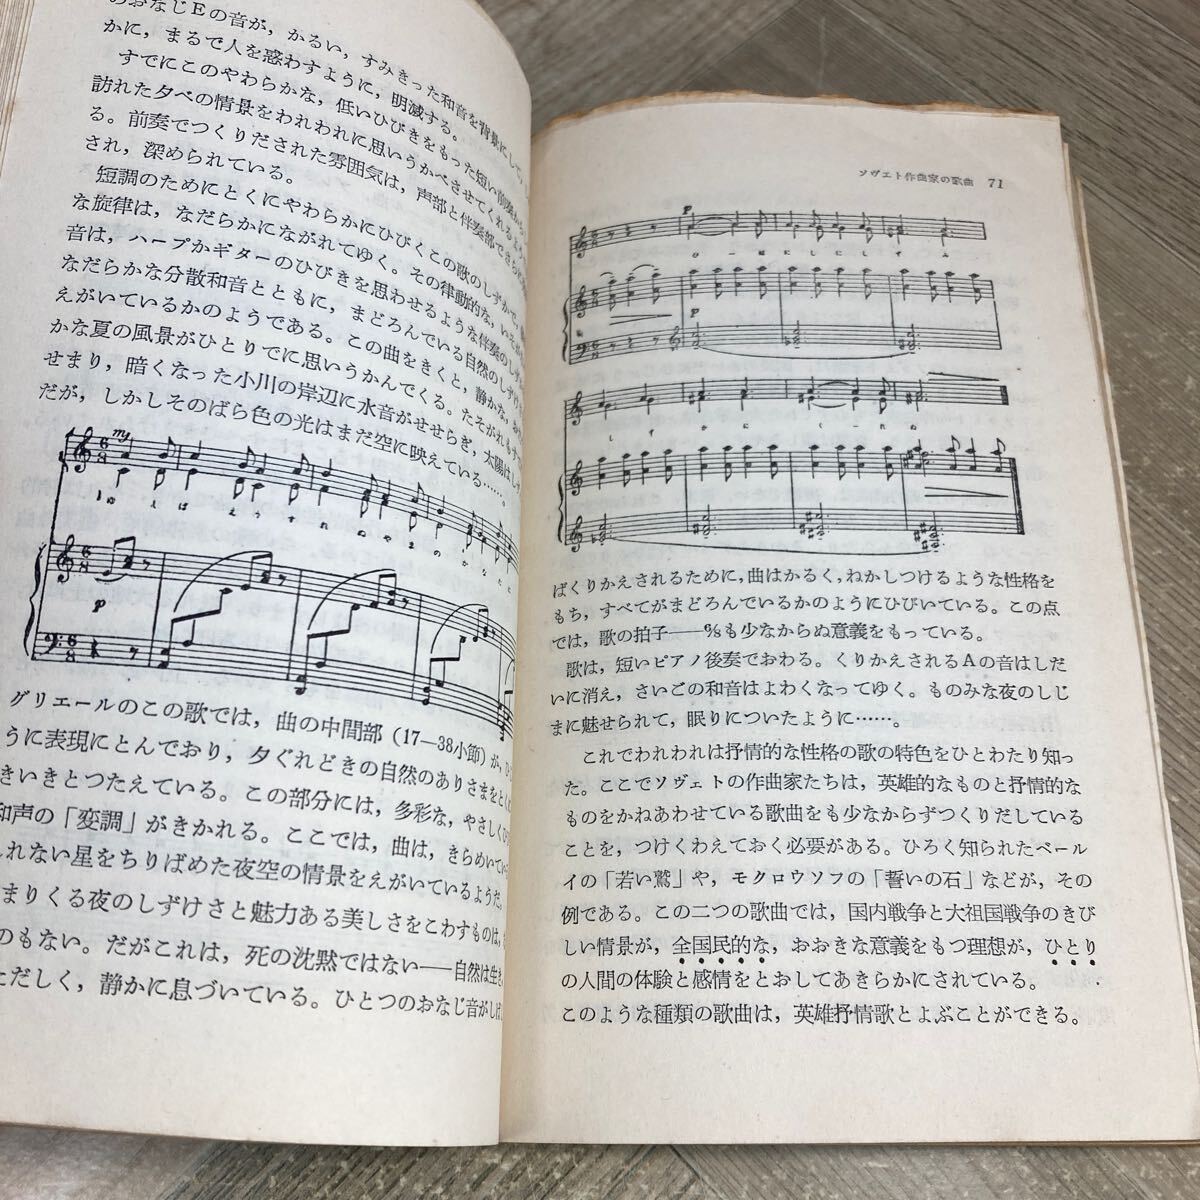 のおなじEの音が，かるい，すみきった和音を背景にして
かに，まるで人を惑わすように，明滅する。
すでにこのやわらかな，低いひびきをもった短い前奏が
訪れた夕べの情景をわれわれに思いうかべさせてくれるよう
る。前奏でつくりだされた雰囲気は，声部と伴奏部でさらに
され，深められている。
短調のためにとくにやわらかにひびくこの歌のしずかで，
な旋律は，なだらかにながれてゆく。その律動的な，
音は，ハープかギターのひびきを思わせるような伴奏の
なだらかな分散和音とともに，まどろんでいる自然のしずけさ
えがいているかのようである。この曲をきくと，静かな，
かな夏の風景がひとりでに思いうかんでくる。たそがれも
せまり，暗くなった小川の岸辺に水音がせせらぎ，太陽は
だが，しかしそのばら色の光はまだ空に映えている……。
mf
p
グリエールのこの歌では，曲の中間部（17—38小節）が，
うに表現にとんでおり，夕ぐれどきの自然のありさまを
きいきとつたえている。この部分には，多彩な，やさしく
和声の「変調」がきかれる。ここでは，曲は，きらめいて
しれない星をちりばめた夜空の情景をえがいているようだ。
まりくる夜のしずけさと魅力ある美しさをこわすものは，
のもない。だがこれは，死の沈黙ではない——自然は生き
ただしく，静かに息づいている。ひとつのおなじ音がしば
ソヴェト作曲家の歌曲 71
p
p
しずかに くーれぬ
ばくりかえされるために，曲はかるく，ねかしつけるような性格を
もち，すべてがまどろんでいるかのようにひびいている。この点
では，歌の拍子——6/8も少なからぬ意義をもっている。
歌は，短いピアノ後奏でおわる。くりかえされるAの音はしだ
いに消え，さいごの和音はよわくなってゆく。ものみな夜のしじ
まに魅せられて，眠りについたように……。
これでわれわれは抒情的な性格の歌の特色をひとわたり知っ
た。ここでソヴェトの作曲家たちは，英雄的なものと抒情的な
ものをかねあわせている歌曲を少なからずつくりだしている
ことを，つけくわえておく必要がある。ひろく知られたベールイ
イの「若い鷲」や，モクロウソフの「誓いの石」などが，その
例である。この二つの歌曲では，国内戦争と大祖国戦争のきび
しい情景が，全国民的な，おおきな意義をもつ理想が，ひとり
の人間の体験と感情をとおしてあきらかにされている。
このような種類の歌曲は，英雄抒情歌とよぶことができる。